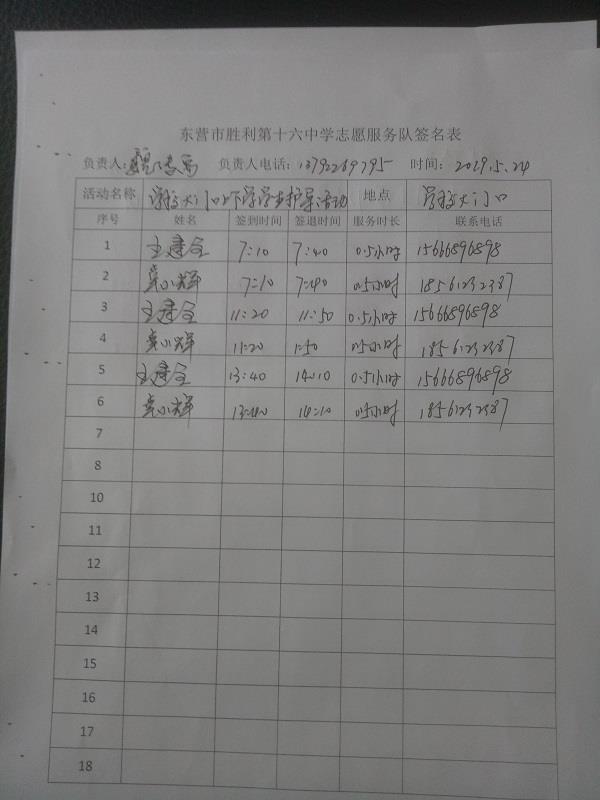 东营市胜利第十六中学志愿服务队签名表
负责人: 负责人电话: 13792269795 时间: 2019.5.24
活动名称 学校大门口上下学学生护导活动 地点 学校大门口
序号 姓名 签到时间 签退时间 服务时长 联系电话
1 王建全 7:10 7:40 0.5小时 15666896898
2 袁小辉 7:10 7:40 0.5小时 18561232387
3 王建全 11:20 11:50 0.5小时 15666896898
4 袁小辉 11:20 1:50 0.5小时 18561232387
5 王建全 13:40 14:10 0.5小时 15666896898
6 袁小辉 13:40 14:10 0.5小时 18561232387
7
8
9
10
11
12
13
14
15
16
17
18